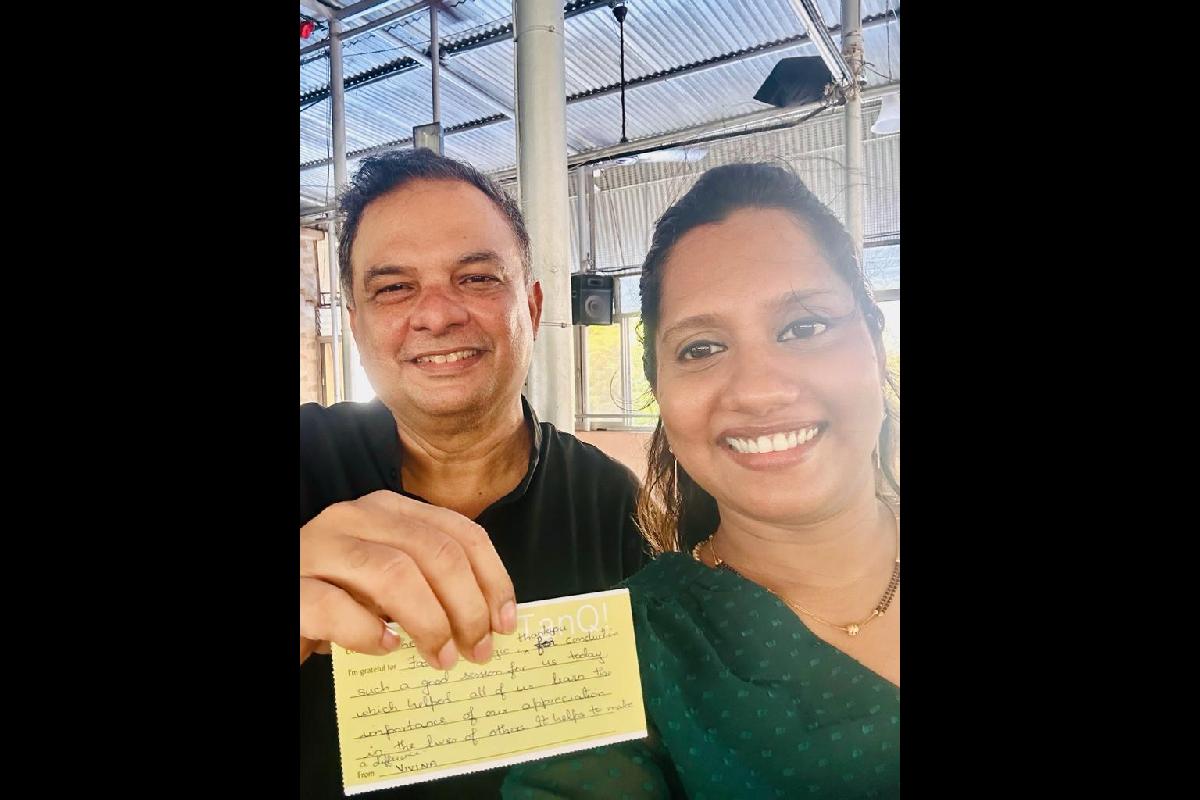 TanQ!
thankyou
I'm grateful for for conducting
such a good session for us today
which helped all of us learn the
importance of our appreciation
in the lives of others. It helps to make
a difference
From VIVINA